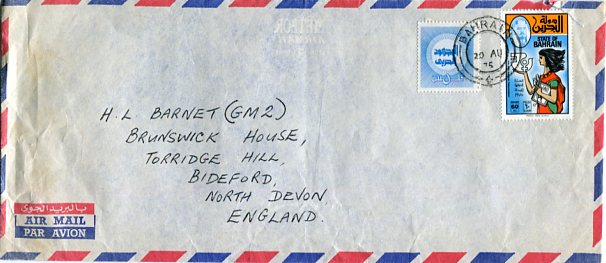 BAHRAIN
20 AU
75
دولة
البحرين
STATE OF
BAHRAIN
60
H. L BARNET (GM2)
BRUNSWICK HOUSE,
TORRIDGE HILL,
BIDEFORD,
NORTH DEVON
ENGLAND.
بالبريد الجوى
AIR MAIL
PAR AVION